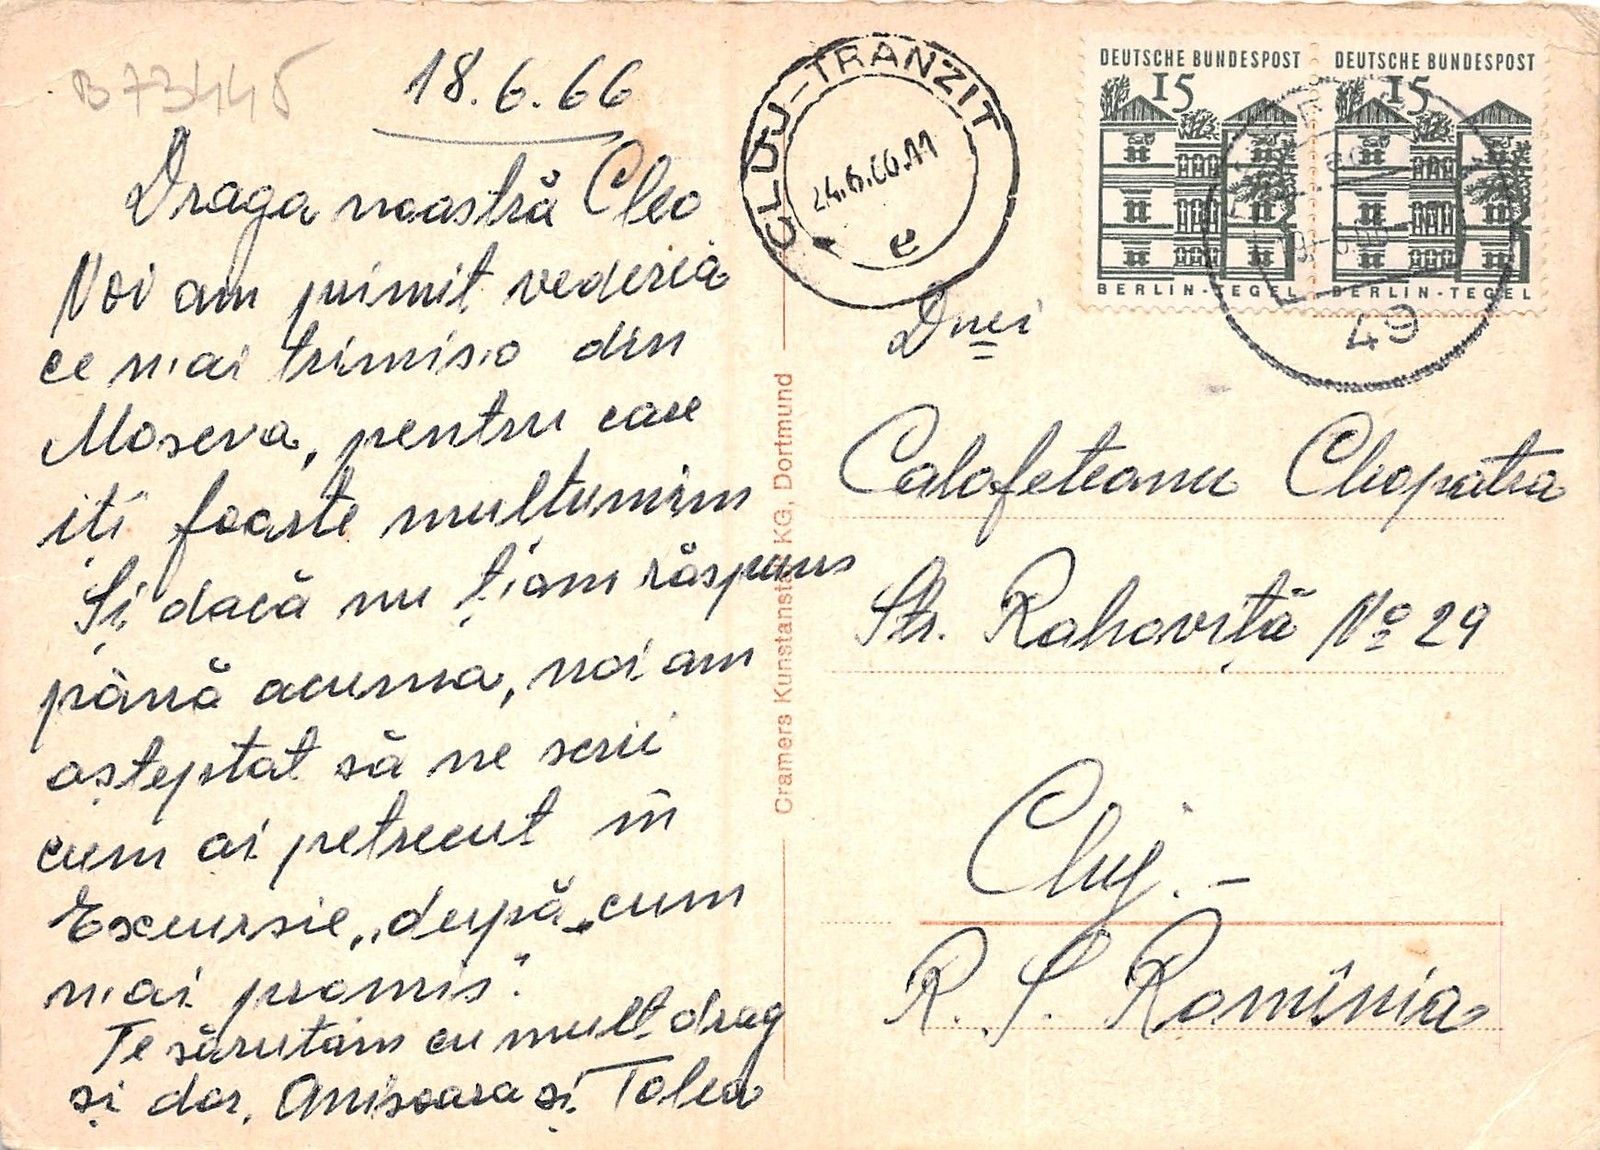 B73445
18.6.66
Draga noastră Cleo
Noi am primit vederia
ce n'ai trimis'o din
Moscva, pentru care
iți foarte multumim
Și dacă nu ți'am răspuns
până acuma, noi am
așteptat să ne scrii
cum ai petrecut în
Excursie „după cum
n'ai promis".
Te sărutăm cu mult drag
și dor, Anișoara și Tolea
Cramers Kunstanstalt KG, Dortmund
CLUJ-TRANZIT
24.6.66.11
e
DEUTSCHE BUNDESPOST
15
BERLIN-TEGEL
DEUTSCHE BUNDESPOST
15
BERLIN-TEGEL
49
Dnei
Calafeteanu Cleopatra
Str. Rahoviță No 29
Cluj.-
R. S. Romînia